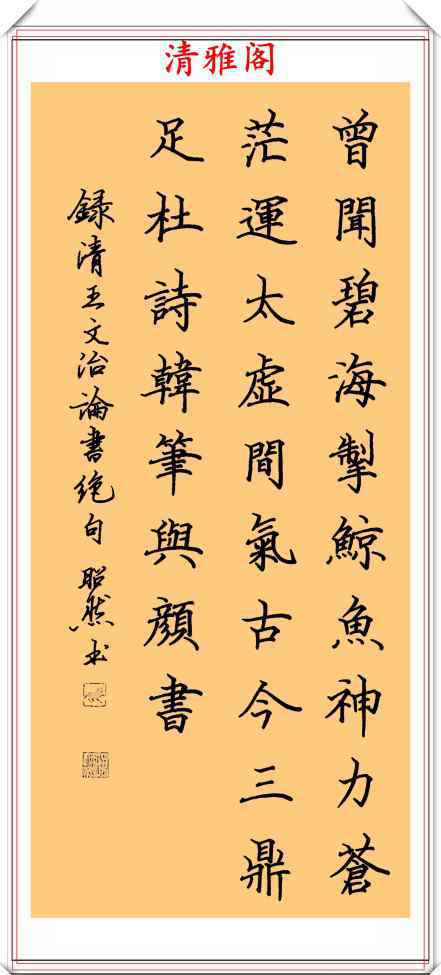 清雅阁
曾聞碧海掣鯨魚神力蒼
茫運太虛間氣古今三鼎
足杜詩韓筆與顔書
録清王文治論書絶句 昭然书